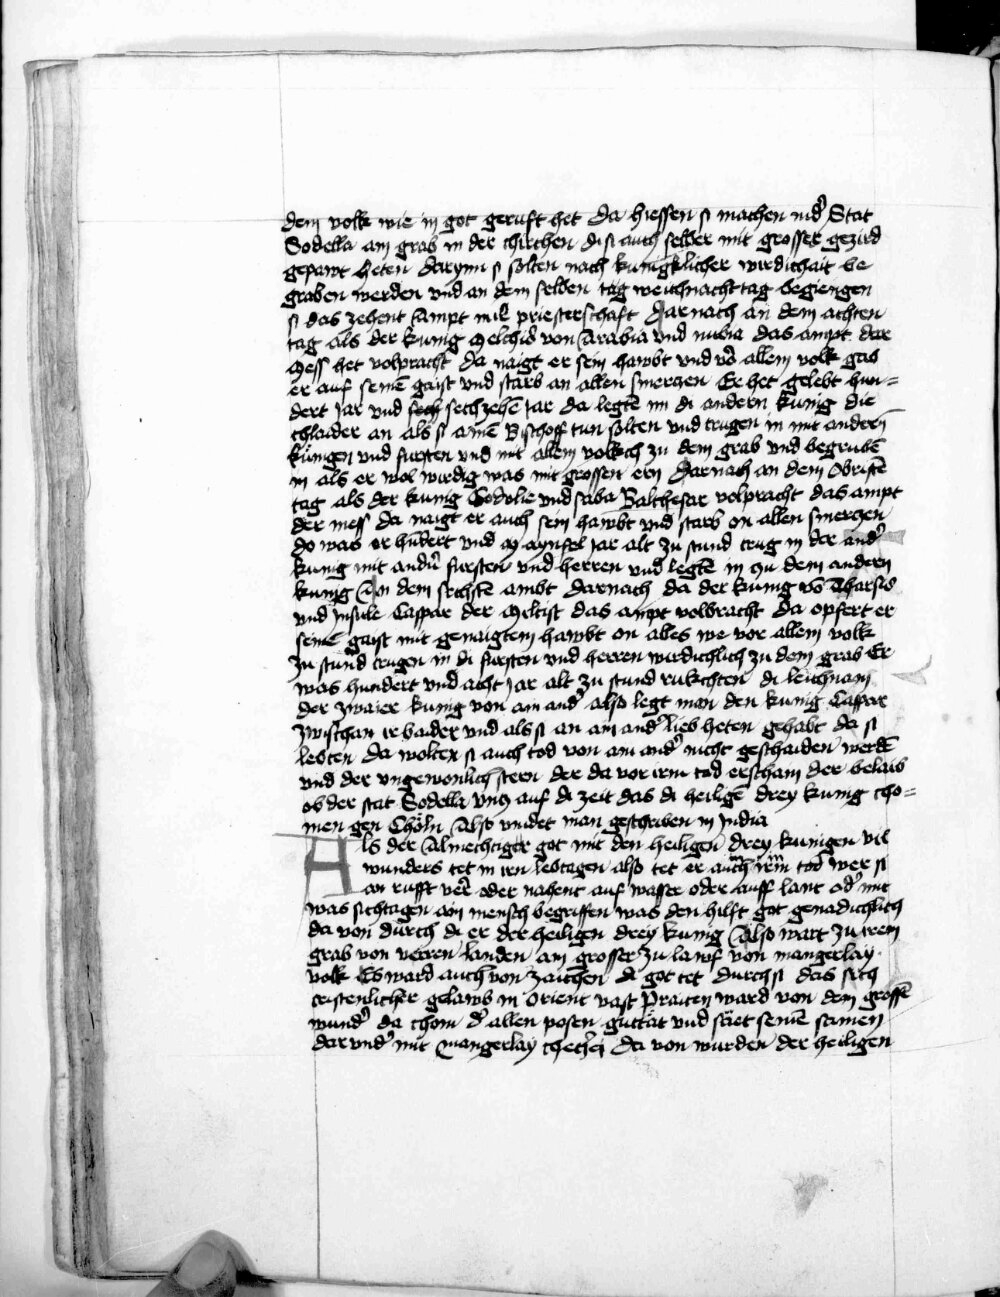 dem volk wie in got geruft het Da hiessen si machen in d̉ Stat
Sodella ain grab in der chirchen di si auch selber mit grosser gezird
gepawt heten darynn si solten nach kunigklicher wirdichait be
graben werden vnd an dem selben tag weichnacht tag begiengen
si das zehent sampt mit priesterschaft Darnach an dem achten
tag als der kunig Melchior von Arabia vnd nubia das ampt der
Mess het volpracht da naigt er sein hawbt vnd vor allem volk gab
er auf seinē gaist vnd starb an allen smerczen Er het gelebt hun=
dert Jar vnd sech sechzehē Jar da legtē im di andern kunig die
chlaider an als si ainē Bischoff tun solten vnd trugen in mit andern̄
kunigen vnd fursten vnd mit allem volkch zu dem grab vnd begrubē
in als er wol wirdig was mit grossen ern Darnach an dem Obristē
tag als der kunig Godolie vnd saba Balthesar volpracht das ampt
der mess da naigt er auch sein hawbt vnd starb on allen smerczen
do was er hūdert vnd aynlef Jar alt zu stund trug in der and̉
kunig mit and̉n fursten vnd herren vnd legtē in zu dem andern
kunig An dem sechsten ambt darnach da der kunig vō Tharsis
vnd Insule Caspar der Meltist das ampt volbracht da opfert er
seinē gaist mit genaigtem hawbt on alles we vor allem volk
zu stund trugen in di fursten vnd herren wirdichlich zu dem grab Er
was hundert vnd acht Jar alt zu stund rukchten di leichnam
der zwaier kunig von ain and̉ also legt man den kunig Caspar
zwischan ir baider vnd als si an ain and̉ lieb heten gehabt da si
lebten da wolten si auch tod von ain and̉ nicht geschaiden werdē
vnd der vngewonlich stern der da vor irm tod erschain der belaib
ob der stat Sodella vncz auf di zeit das di heiligē drey kunig cho=
men gen Chöln Also vindet man geschriben in India
Als der Almechtiger got mit den heiligen drey kunigen vil
wunders tet in irn lebtagen also tet er auch nach irm tod wer si
an rufft verr oder nahent auf wasser oder auff lant od̉ mit
was sichtagen ain mensch begriffen was den hilft got genadichlich
da von durch di er der heiligen drey kunig Also wart zu irem
grab von verren landen ain grosser zu lawf von mangerlay
volk Es ward auch von zaichen di got tet durch si das sich
cristenlicher gelawb in Orient vast praiten ward von dem grossē
wund̉ da chom d̉ allen posen guttät vnd säet seinē samen
darund̉ mit mangerlay checzei da von wurden der heiligen